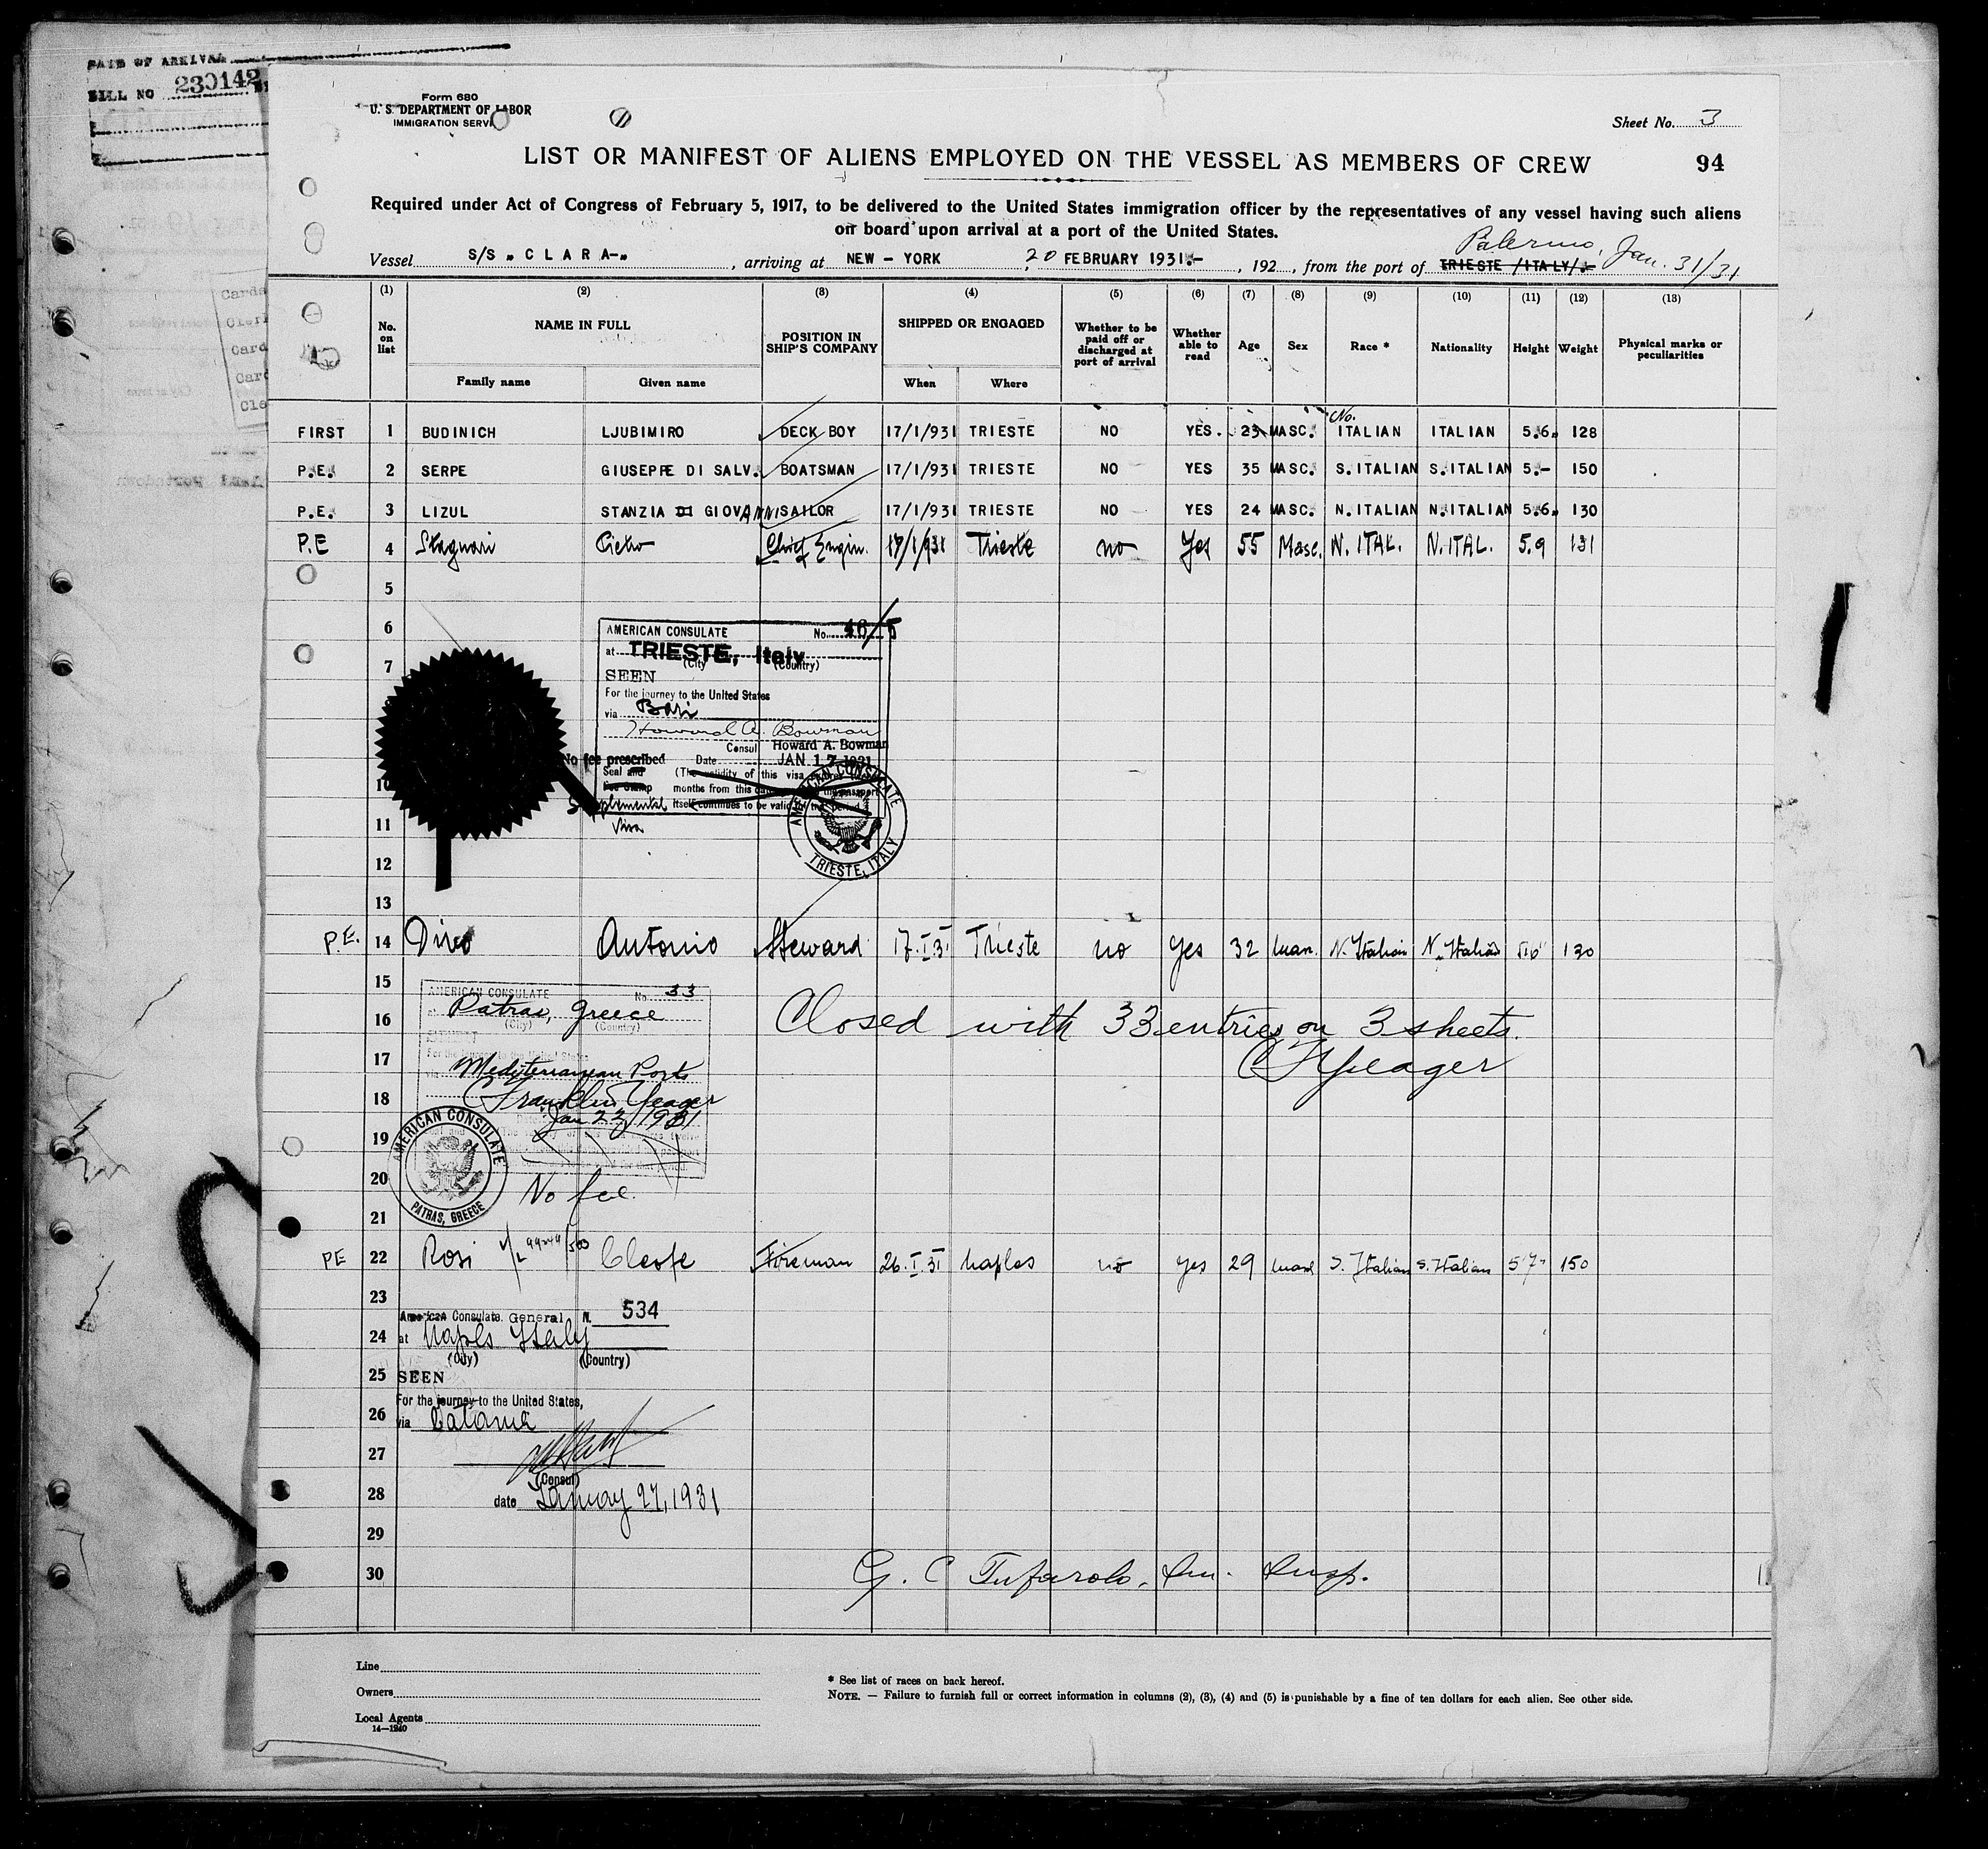 DATE OF ARRIVAL
BILL NO 230142
Form 680
U. S. DEPARTMENT OF LABOR
IMMIGRATION SERVI
Sheet No. 3
LIST OR MANIFEST OF ALIENS EMPLOYED ON THE VESSEL AS MEMBERS OF CREW
94
Required under Act of Congress of February 5, 1917, to be delivered to the United States immigration officer by the representatives of any vessel having such aliens
on board upon arrival at a port of the United States.
Palermo, Jan. 31/31
Vessel S/S „ C L A R A-„ , arriving at NEW - YORK 20 FEBRUARY 1931.- , 192 , from the port of TRIESTE /ITALY/.-
(1) (2) (3) (4) (5) (6) (7) (8) (9) (10) (11) (12) (13)
No. on list NAME IN FULL POSITION IN SHIP'S COMPANY SHIPPED OR ENGAGED Whether to be paid off or discharged at port of arrival Whether able to read Age Sex Race * Nationality Height Weight Physical marks or peculiarities
Family name Given name When Where
No.
FIRST 1 BUDINICH LJUBIMIRO DECK BOY 17/1/931 TRIESTE NO YES. 23 MASC. ITALIAN ITALIAN 5.6. 128
P.E. 2 SERPE GIUSEPPE DI SALV. BOATSMAN 17/1/931 TRIESTE NO YES 35 MASC. S.ITALIAN S.ITALIAN 5.- 150
P.E. 3 LIZUL STANZIA DI GIOVANNI SAILOR 17/1/931 TRIESTE NO YES 24 MASC. N.ITALIAN N.ITALIAN 5.6. 130
P.E 4 Stagnari Pietro Chief Engin. 17/1/931 Trieste no Yes 55 Masc. N. ITAL. N.ITAL. 5.9 131
5
6
AMERICAN CONSULATE No. 46/5
at TRIESTE, Italy
(City (Country)
7
SEEN
For the journey to the United States
via Bari
Howard A. Bowman
Consul Howard A. Bowman
No fee prescribed Date JAN 17 1931
Seal and (The validity of this visa
10 Fee Stamp months from this
Supplemental itself continues to be valid
11 Visa
AMERICAN CONSULATE
TRIESTE, ITALY
12
13
P.E. 14 Divo Antonio Steward 17.I.31 Trieste no Yes 32 N. Italian N. Italian 5'6" 130
15
AMERICAN CONSULATE No 33
16 Patras, Greece
(City) (Country)
Closed with 33 entries on 3 sheets.
C F Yeager
17 Mediterranean Ports
18 C Franklin Yeager
Jan 22/1931
19
AMERICAN CONSULATE
PATRAS, GREECE
20 No fee.
21
PE 22 Rosi Cleofe Fireman 26.I.31 Naples no yes 29 masc S. Italian S. Italian 5'7" 150
23
American Consulate General N. 534
24 at Naples Italy
(City) (Country)
25 SEEN
For the journey to the United States,
26 via Catania
27
(Consul)
28 date January 27, 1931
29
30 G. C Tufarolo, Im. Insp.
Line
Owners
Local Agents
14—1240
* See list of races on back hereof.
NOTE. — Failure to furnish full or correct information in columns (2), (3), (4) and (5) is punishable by a fine of ten dollars for each alien. See other side.